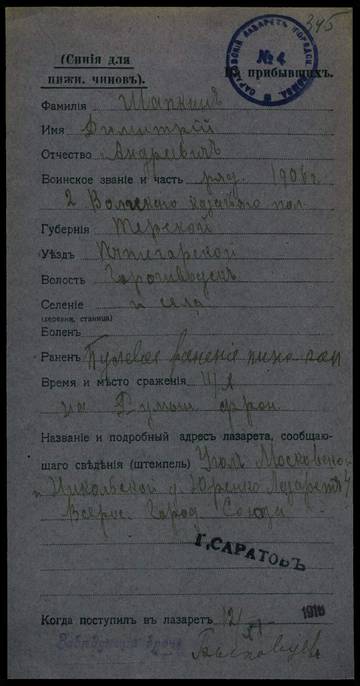 345
(Синія для
нижн. чиновъ).
№ 4
прибывшихъ.
Фамилія Шапкинъ
Имя Димитрій
Отчество Андреевичъ
Воинское званіе и часть ряд. 1906 г
2 Волжскаго казачьяго пол
Губернія Терской
Уѣздъ Пятигорской
Волость
Селеніе и села
(деревня, станица)
Боленъ
Раненъ Пулевое раненіе
Время и мѣсто сраженія
на Румын фрон
Названіе и подробный адресъ лазарета, сообщаю-
щаго свѣдѣнія (штемпель) Уголъ Московской
и Никольской д. Юренко Лазаретъ 4
Всерос. Город Союза
Г. САРАТОВЪ
Когда поступилъ въ лазаретъ 12/XI 1916
Завѣдующій врачъ